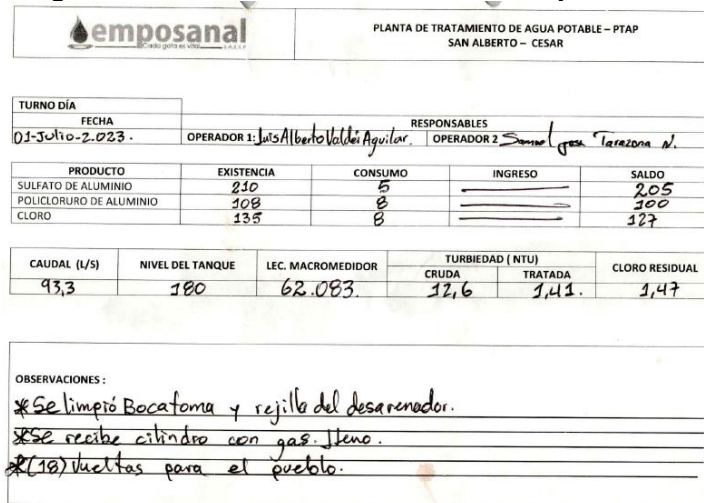 emposanal
Cada gota es vital
PLANTA DE TRATAMIENTO DE AGUA POTABLE – PTAP
SAN ALBERTO – CESAR
TURNO DÍA
FECHA RESPONSABLES
01-Julio-2.023. OPERADOR 1: Luis Alberto Valdés Aguilar. OPERADOR 2 Samuel Jose Tarazona N.
PRODUCTO EXISTENCIA CONSUMO INGRESO SALDO
SULFATO DE ALUMINIO 210 5 205
POLICLORURO DE ALUMINIO 108 8 100
CLORO 135 8 127
CAUDAL (L/S) NIVEL DEL TANQUE LEC. MACROMEDIDOR TURBIEDAD ( NTU) CLORO RESIDUAL
CRUDA TRATADA
93,3 180 62.083. 12,6 1,41. 1,47
OBSERVACIONES :
*Se limpió Bocatoma y rejilla del desarenador.
*Se recibe cilindro con gas. lleno.
*(18) Vueltas para el pueblo.